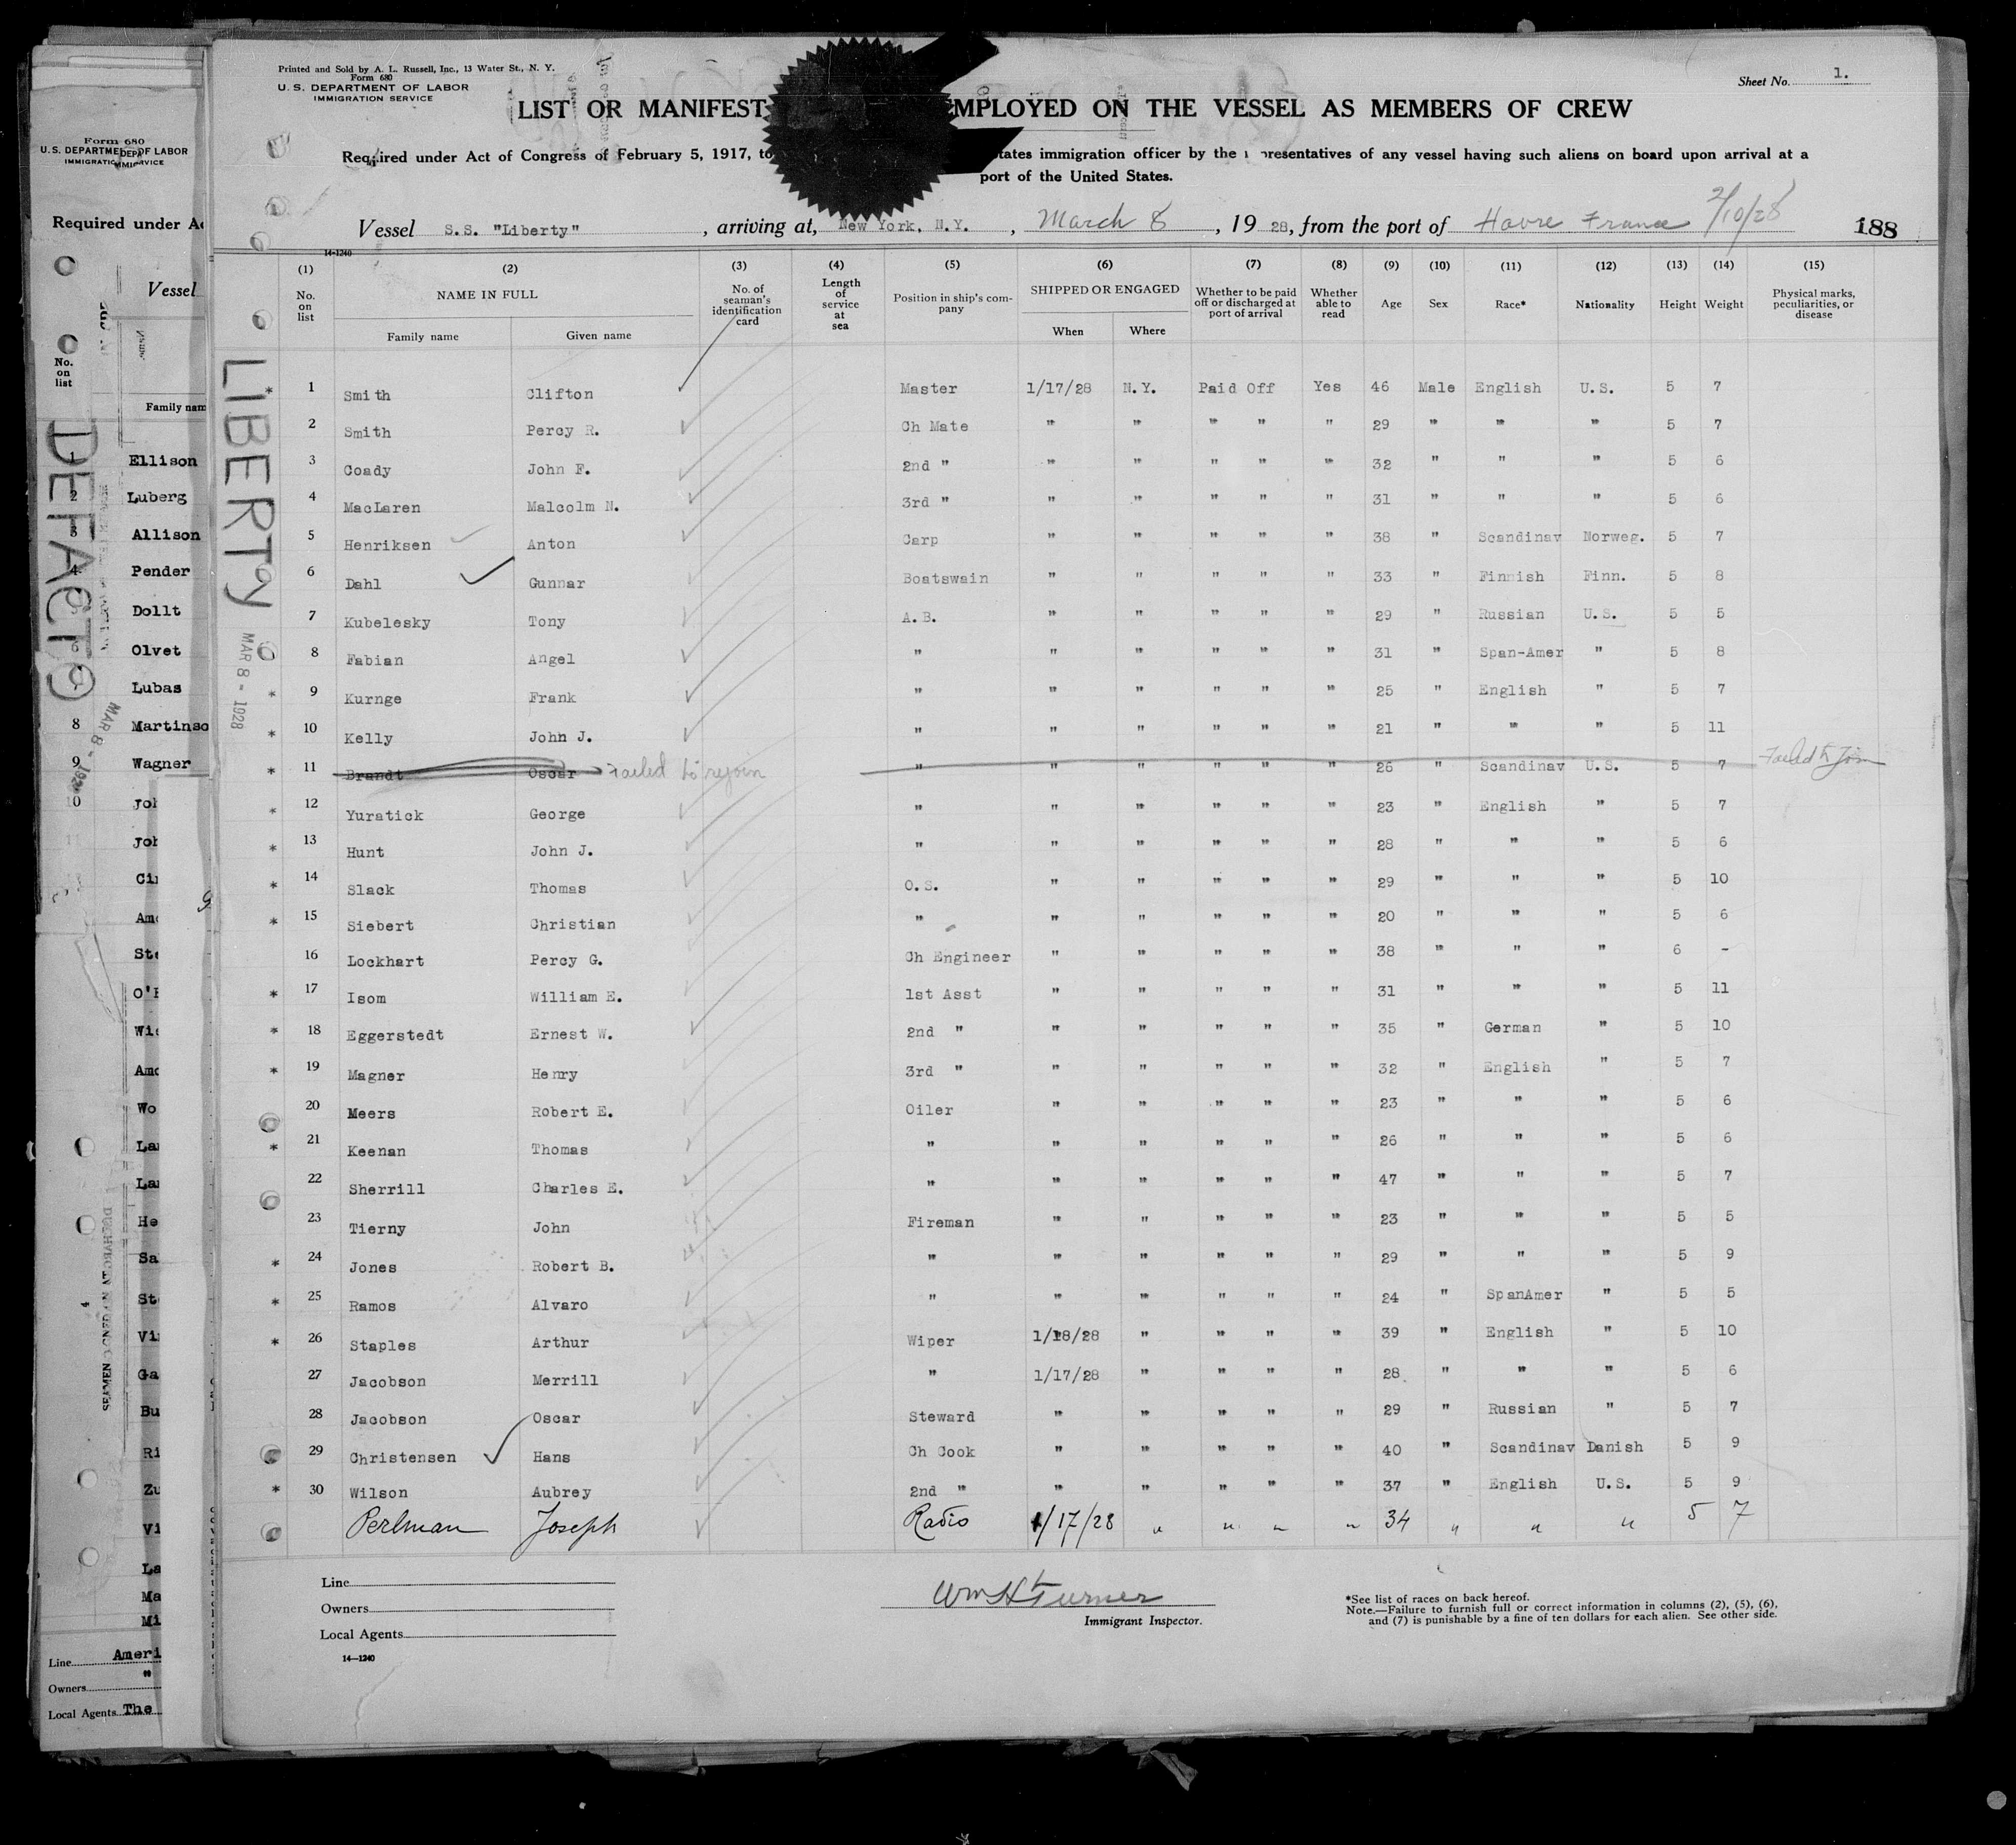 Printed and Sold by A. L. Russell, Inc., 13 Water St., N. Y.
Form 680
U. S. DEPARTMENT OF LABOR
IMMIGRATION SERVICE
Sheet No. 1.
LIST OR MANIFEST MPLOYED ON THE VESSEL AS MEMBERS OF CREW
Required under Act of Congress of February 5, 1917, to tates immigration officer by the presentatives of any vessel having such aliens on board upon arrival at a
port of the United States.
Vessel S.S. "Liberty", arriving at, New York, N.Y., March 8, 1928, from the port of Havre France 2/10/28 188
14-1240
(1) (2) (3) (4) (5) (6) (7) (8) (9) (10) (11) (12) (13) (14) (15)
No. on list NAME IN FULL Family name Given name No. of seaman's identification card Length of service at sea Position in ship's company SHIPPED OR ENGAGED When Where Whether to be paid off or discharged at port of arrival Whether able to read Age Sex Race* Nationality Height Weight Physical marks, peculiarities, or disease
LIBERTY
MAR 8 - 1928
* 1 Smith Clifton Master 1/17/28 N.Y. Paid Off Yes 46 Male English U.S. 5 7
2 Smith Percy R. Ch Mate " " " " " 29 " " " 5 7
3 Coady John F. 2nd " " " " " " 32 " " " 5 6
4 MacLaren Malcolm N. 3rd " " " " " " 31 " " " 5 6
5 Henriksen Anton Carp " " " " " 38 " Scandinav Norweg. 5 7
6 Dahl Gunnar Boatswain " " " " " 33 " Finnish Finn. 5 8
7 Kubelesky Tony A.B. " " " " " 29 " Russian U.S. 5 5
8 Fabian Angel " " " " " " 31 " Span-Amer " 5 8
* 9 Kurnge Frank " " " " " " 25 " English " 5 7
* 10 Kelly John J. " " " " " " 21 " " " 5 11
* 11 Brandt Oscar Failed to rejoin " " " " " " 26 " Scandinav U.S. 5 7 Failed to Join
* 12 Yuratick George " " " " " " 23 " English " 5 7
* 13 Hunt John J. " " " " " " 28 " " " 5 6
* 14 Slack Thomas O.S. " " " " " 29 " " " 5 10
* 15 Siebert Christian " " " " " " 20 " " " 5 6
16 Lockhart Percy G. Ch Engineer " " " " " 38 " " " 6 -
* 17 Isom William E. 1st Asst " " " " " 31 " " " 5 11
* 18 Eggerstedt Ernest W. 2nd " " " " " " 35 " German " 5 10
* 19 Magner Henry 3rd " " " " " " 32 " English " 5 7
20 Meers Robert E. Oiler " " " " " 23 " " " 5 6
* 21 Keenan Thomas " " " " " " 26 " " " 5 6
22 Sherrill Charles E. " " " " " " 47 " " " 5 7
23 Tierny John Fireman " " " " " 23 " " " 5 5
* 24 Jones Robert B. " " " " " " 29 " " " 5 9
* 25 Ramos Alvaro " " " " " " 24 " SpanAmer " 5 5
* 26 Staples Arthur Wiper 1/18/28 " " " " 39 " English " 5 10
27 Jacobson Merrill " 1/17/28 " " " " 28 " " " 5 6
28 Jacobson Oscar Steward " " " " " 29 " Russian " 5 7
29 Christensen Hans Ch Cook " " " " " 40 " Scandinav Danish 5 9
* 30 Wilson Aubrey 2nd " " " " " " 37 " English U.S. 5 9
Perlman Joseph Radio 1/17/28 " " " " 34 " " " 5 7
Line
Owners
Local Agents
14—1240
Wm H Turner
Immigrant Inspector.
*See list of races on back hereof.
Note.—Failure to furnish full or correct information in columns (2), (5), (6),
and (7) is punishable by a fine of ten dollars for each alien. See other side.
Form 680
U. S. DEPARTMENT OF LABOR
Required under Ac
Vessel
No. on list
Family nam
DEFACTO
MAR 8 - 1928
1 Ellison
2 Luberg
3 Allison
4 Pender
Dollt
Olvet
Lubas
8 Martinso
9 Wagner
10 Joh
Joh
Ste
O'
Wo
He
Sa
Ga
Bu
Ri
Zu
Vi
La
Ma
Mi
Line Ameri
Owners "
Local Agents The